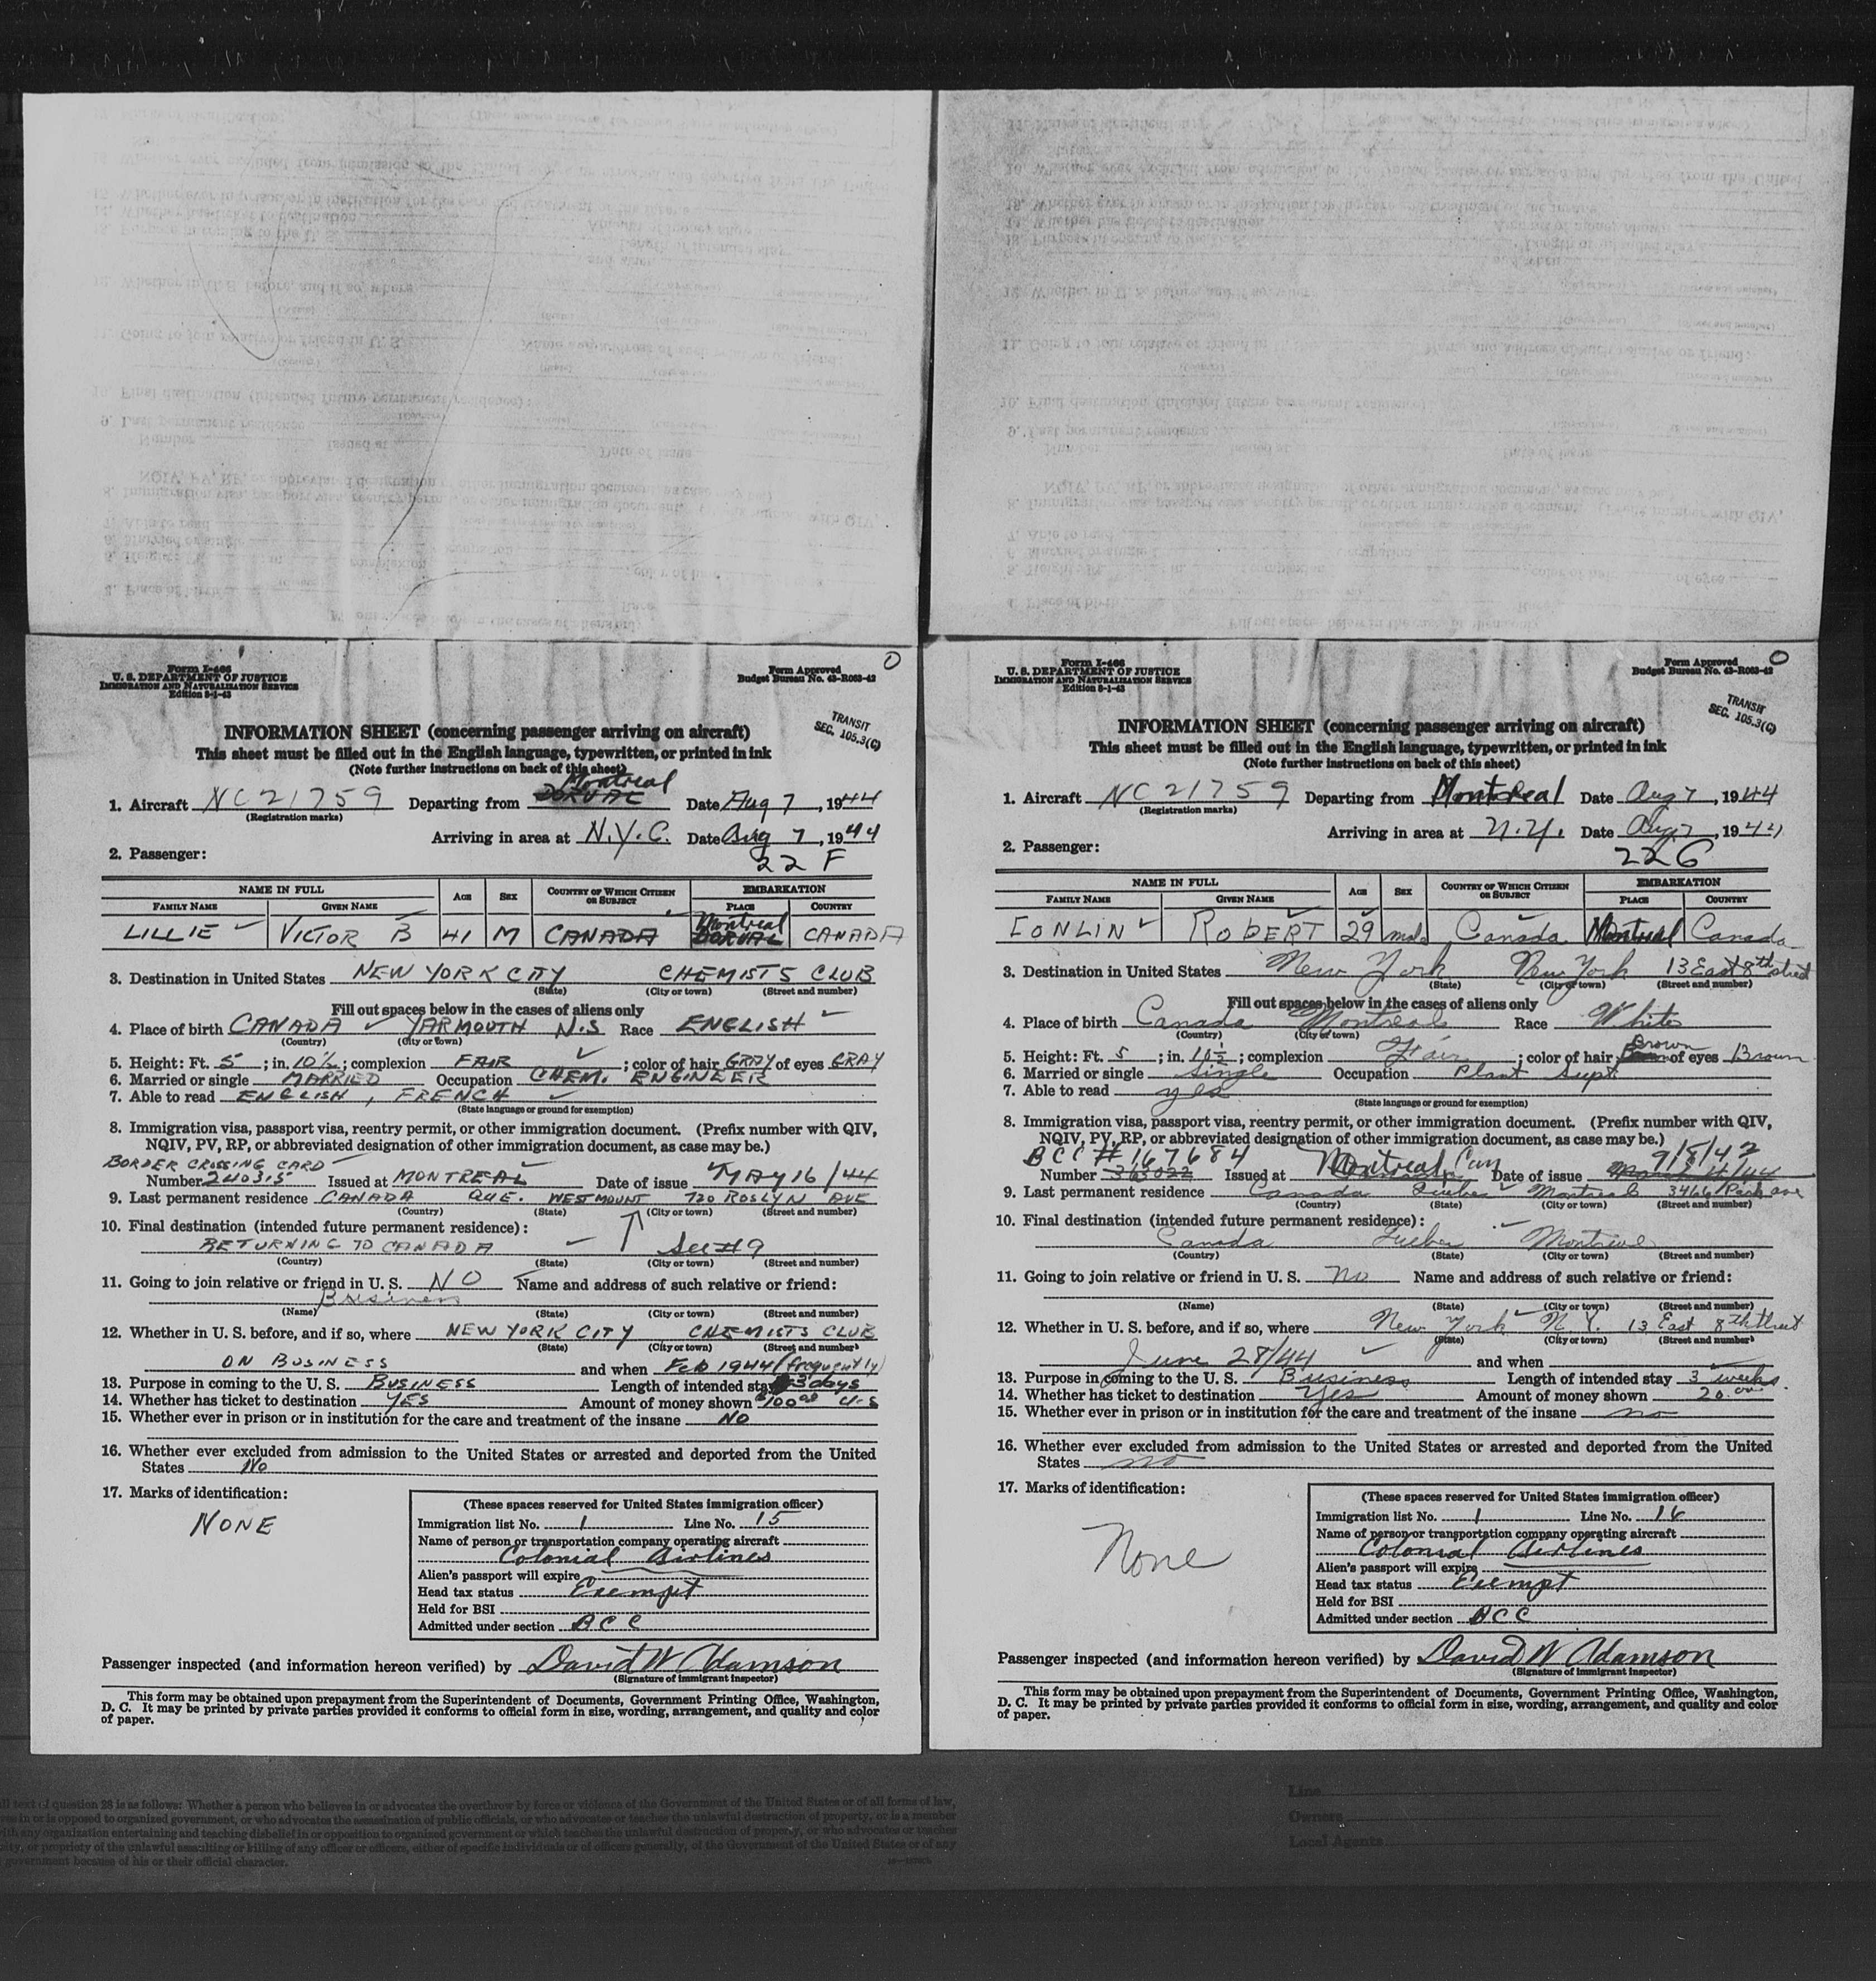 Form I-466
U. S. DEPARTMENT OF JUSTICE
IMMIGRATION AND NATURALIZATION SERVICE
Edition 8-1-43
Form Approved
Budget Bureau No. 43-R063-42
TRANSIT
SEC. 105.3(C)
INFORMATION SHEET (concerning passenger arriving on aircraft)
This sheet must be filled out in the English language, typewritten, or printed in ink
(Note further instructions on back of this sheet)
Montreal
1. Aircraft NC21759 Departing from DORVAL Date Aug 7, 1944
(Registration marks)
Arriving in area at N.Y.C. Date Aug 7, 1944
2. Passenger: 22 F
NAME IN FULL AGE SEX COUNTRY OF WHICH CITIZEN OR SUBJECT EMBARKATION
FAMILY NAME GIVEN NAME PLACE COUNTRY
Montreal
LILLIE VICTOR B 41 M CANADA DORVAL CANADA
3. Destination in United States NEW YORK CITY CHEMISTS CLUB
(State) (City or town) (Street and number)
Fill out spaces below in the cases of aliens only
4. Place of birth CANADA YARMOUTH N.S Race ENGLISH
(Country) (City or town)
5. Height: Ft. 5; in. 10½; complexion FAIR; color of hair GRAY of eyes GRAY
6. Married or single MARRIED Occupation CHEM. ENGINEER
7. Able to read ENGLISH, FRENCH
(State language or ground for exemption)
8. Immigration visa, passport visa, reentry permit, or other immigration document. (Prefix number with QIV,
NQIV, PV, RP, or abbreviated designation of other immigration document, as case may be.)
BORDER CROSSING CARD
Number 240315 Issued at MONTREAL Date of issue MAY 16/44
9. Last permanent residence CANADA QUE. WESTMOUNT 720 ROSLYN AVE
(Country) (State) (City or town) (Street and number)
10. Final destination (intended future permanent residence):
RETURNING TO CANADA See #9
(Country) (State) (City or town) (Street and number)
11. Going to join relative or friend in U. S. NO Name and address of such relative or friend:
Business
(Name) (State) (City or town) (Street and number)
12. Whether in U. S. before, and if so, where NEW YORK CITY CHEMISTS CLUB
(State) (City or town) (Street and number)
ON BUSINESS and when FEB 1944 (frequently)
13. Purpose in coming to the U. S. BUSINESS Length of intended stay 3 days
14. Whether has ticket to destination YES Amount of money shown $100.00 U-S
15. Whether ever in prison or in institution for the care and treatment of the insane NO
16. Whether ever excluded from admission to the United States or arrested and deported from the United
States No
17. Marks of identification:
NONE
(These spaces reserved for United States immigration officer)
Immigration list No. 1 Line No. 15
Name of person or transportation company operating aircraft
Colonial Airlines
Alien's passport will expire
Head tax status Exempt
Held for BSI
Admitted under section BCC
Passenger inspected (and information hereon verified) by David W Adamson
(Signature of immigrant inspector)
This form may be obtained upon prepayment from the Superintendent of Documents, Government Printing Office, Washington,
D. C. It may be printed by private parties provided it conforms to official form in size, wording, arrangement, and quality and color
of paper.
Form I-466
U. S. DEPARTMENT OF JUSTICE
IMMIGRATION AND NATURALIZATION SERVICE
Edition 8-1-43
Form Approved
Budget Bureau No. 43-R063-42
TRANSIT
SEC. 105.3(C)
INFORMATION SHEET (concerning passenger arriving on aircraft)
This sheet must be filled out in the English language, typewritten, or printed in ink
(Note further instructions on back of this sheet)
1. Aircraft NC21759 Departing from Montreal Date Aug 7, 1944
(Registration marks)
Arriving in area at N.Y. Date Aug 7, 1944
2. Passenger: 22 G
NAME IN FULL AGE SEX COUNTRY OF WHICH CITIZEN OR SUBJECT EMBARKATION
FAMILY NAME GIVEN NAME PLACE COUNTRY
CONLIN ROBERT 29 male Canada Montreal Canada
3. Destination in United States New York New York 13 East 8th street
(State) (City or town) (Street and number)
Fill out spaces below in the cases of aliens only
4. Place of birth Canada Montreal Race White
(Country) (City or town)
Brown
5. Height: Ft. 5; in. 10½; complexion Fair; color of hair of eyes Brown
6. Married or single Single Occupation Plant Supt.
7. Able to read yes
(State language or ground for exemption)
8. Immigration visa, passport visa, reentry permit, or other immigration document. (Prefix number with QIV,
NQIV, PV, RP, or abbreviated designation of other immigration document, as case may be.)
BCC # 167684 9/8/42
Number 363022 Issued at Montreal Can Date of issue
9. Last permanent residence Canada Quebec Montreal 3466 Park ave
(Country) (State) (City or town) (Street and number)
10. Final destination (intended future permanent residence):
Canada Quebec Montreal
(Country) (State) (City or town) (Street and number)
11. Going to join relative or friend in U. S. No Name and address of such relative or friend:
(Name) (State) (City or town) (Street and number)
12. Whether in U. S. before, and if so, where New York N.Y. 13 East 8th street
(State) (City or town) (Street and number)
June 28/44 and when
13. Purpose in coming to the U. S. Business Length of intended stay 3 weeks
14. Whether has ticket to destination Yes Amount of money shown 20.00
15. Whether ever in prison or in institution for the care and treatment of the insane no
16. Whether ever excluded from admission to the United States or arrested and deported from the United
States no
17. Marks of identification:
None
(These spaces reserved for United States immigration officer)
Immigration list No. 1 Line No. 16
Name of person or transportation company operating aircraft
Colonial Airlines
Alien's passport will expire
Head tax status Exempt
Held for BSI
Admitted under section BCC
Passenger inspected (and information hereon verified) by David W Adamson
(Signature of immigrant inspector)
This form may be obtained upon prepayment from the Superintendent of Documents, Government Printing Office, Washington,
D. C. It may be printed by private parties provided it conforms to official form in size, wording, arrangement, and quality and color
of paper.
text of question 28 is as follows: Whether a person who believes in or advocates the overthrow by force or violence of the Government of the United States or of all forms of law,
Line
Owners
Local Agents